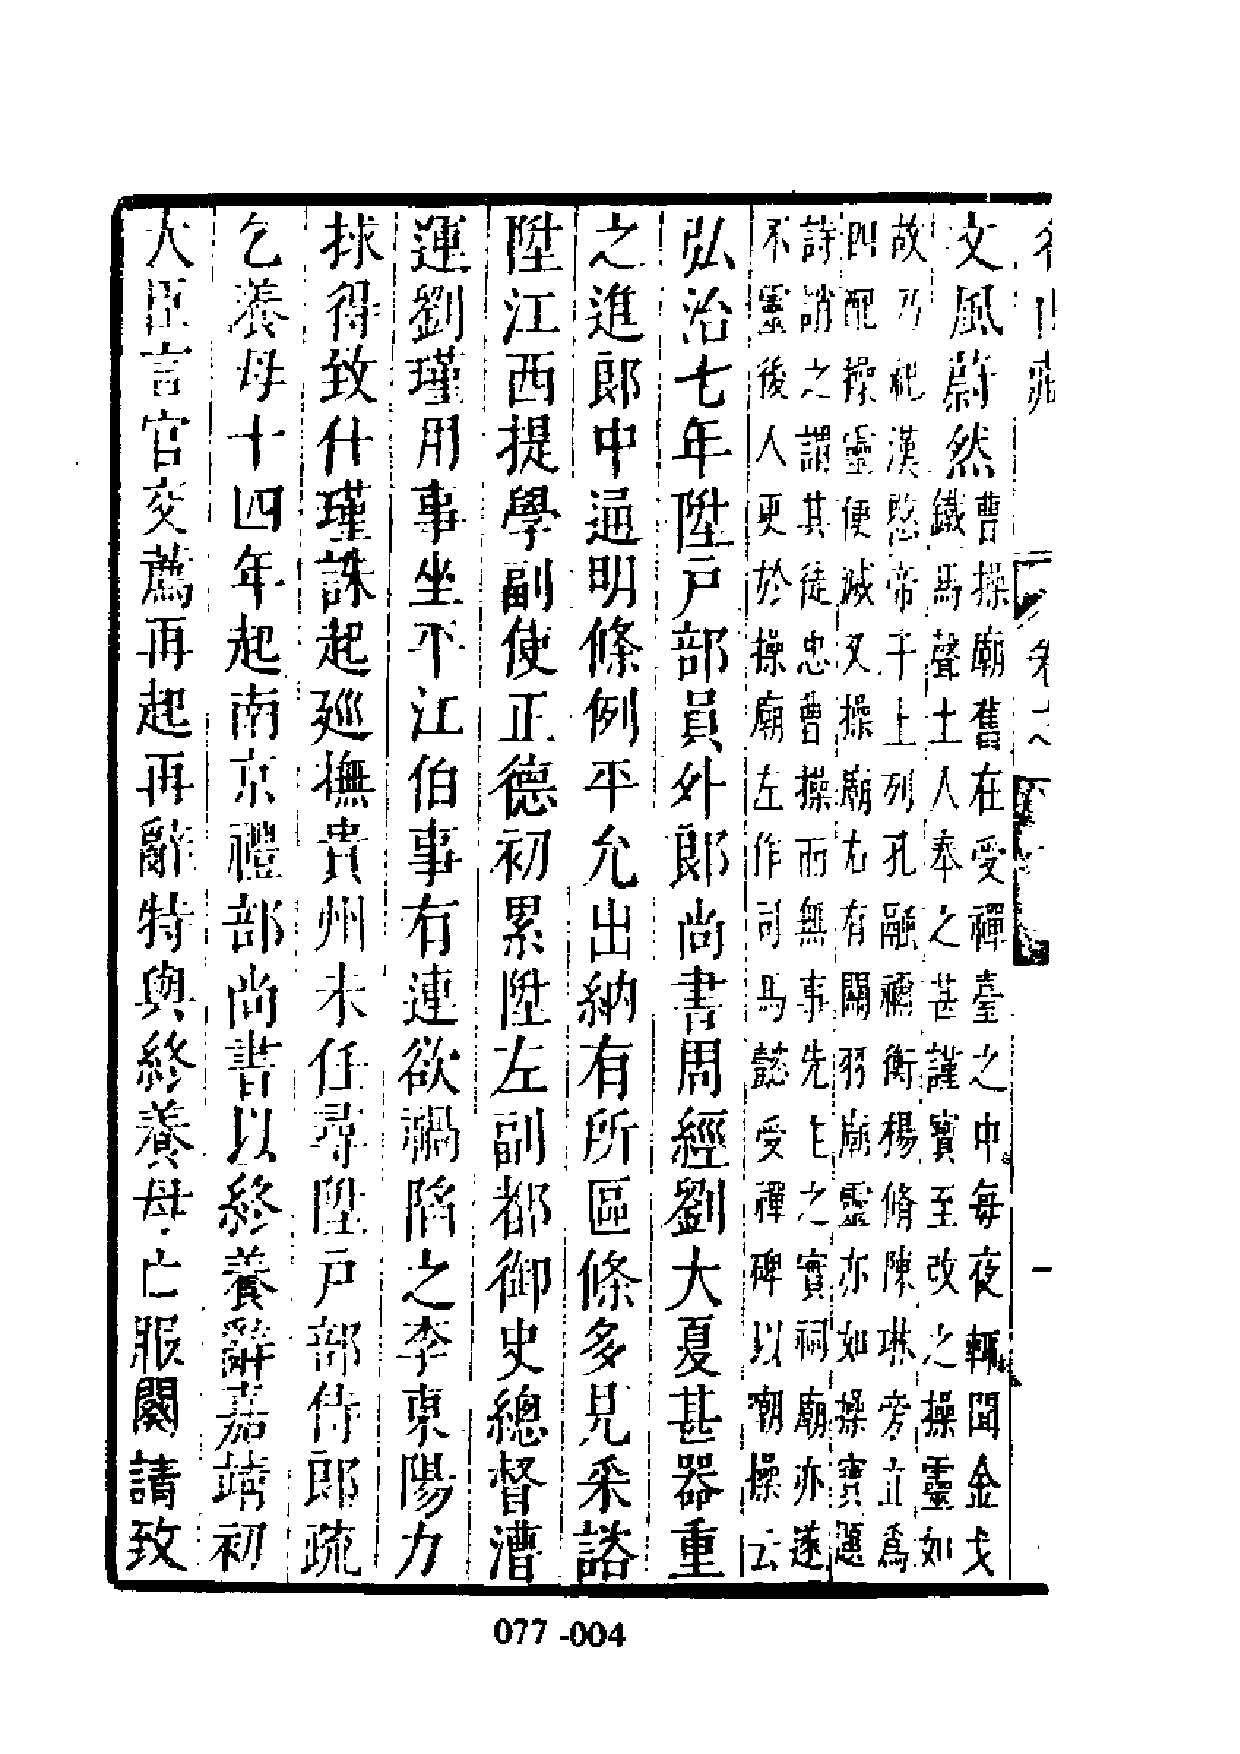 文風蔚然曹操廟舊在受禪臺之中每夜輒聞金戈
鐵馬聲土人奉之甚謹寶至改之操靈如
故乃祀漢愍帝于上列孔融禰衡楊脩陳琳旁立爲
四配操靈便滅又操廟右有關羽廟靈亦如操寶題
詩誚之謂其徒忠曹操而無事先主之實祠廟亦遂
不靈後人更於操廟左作司馬懿受禪碑以嘲操云
弘治七年陞戶部員外郎尚書周經劉大夏甚器重
之進郎中通明條例平允出納有所區條多見采諮
陞江西提學副使正德初累陞左副都御史總督漕
運劉瑾用事坐平江伯事有連欲禍陷之李東陽力
捄得致仕瑾誅起廵撫貴州未任尋陞戶部侍郎疏
乞養母十四年起南京禮部尚書以終養辭嘉靖初
大臣言官交薦再起再辭特與終養母亡服闋請致
077-004